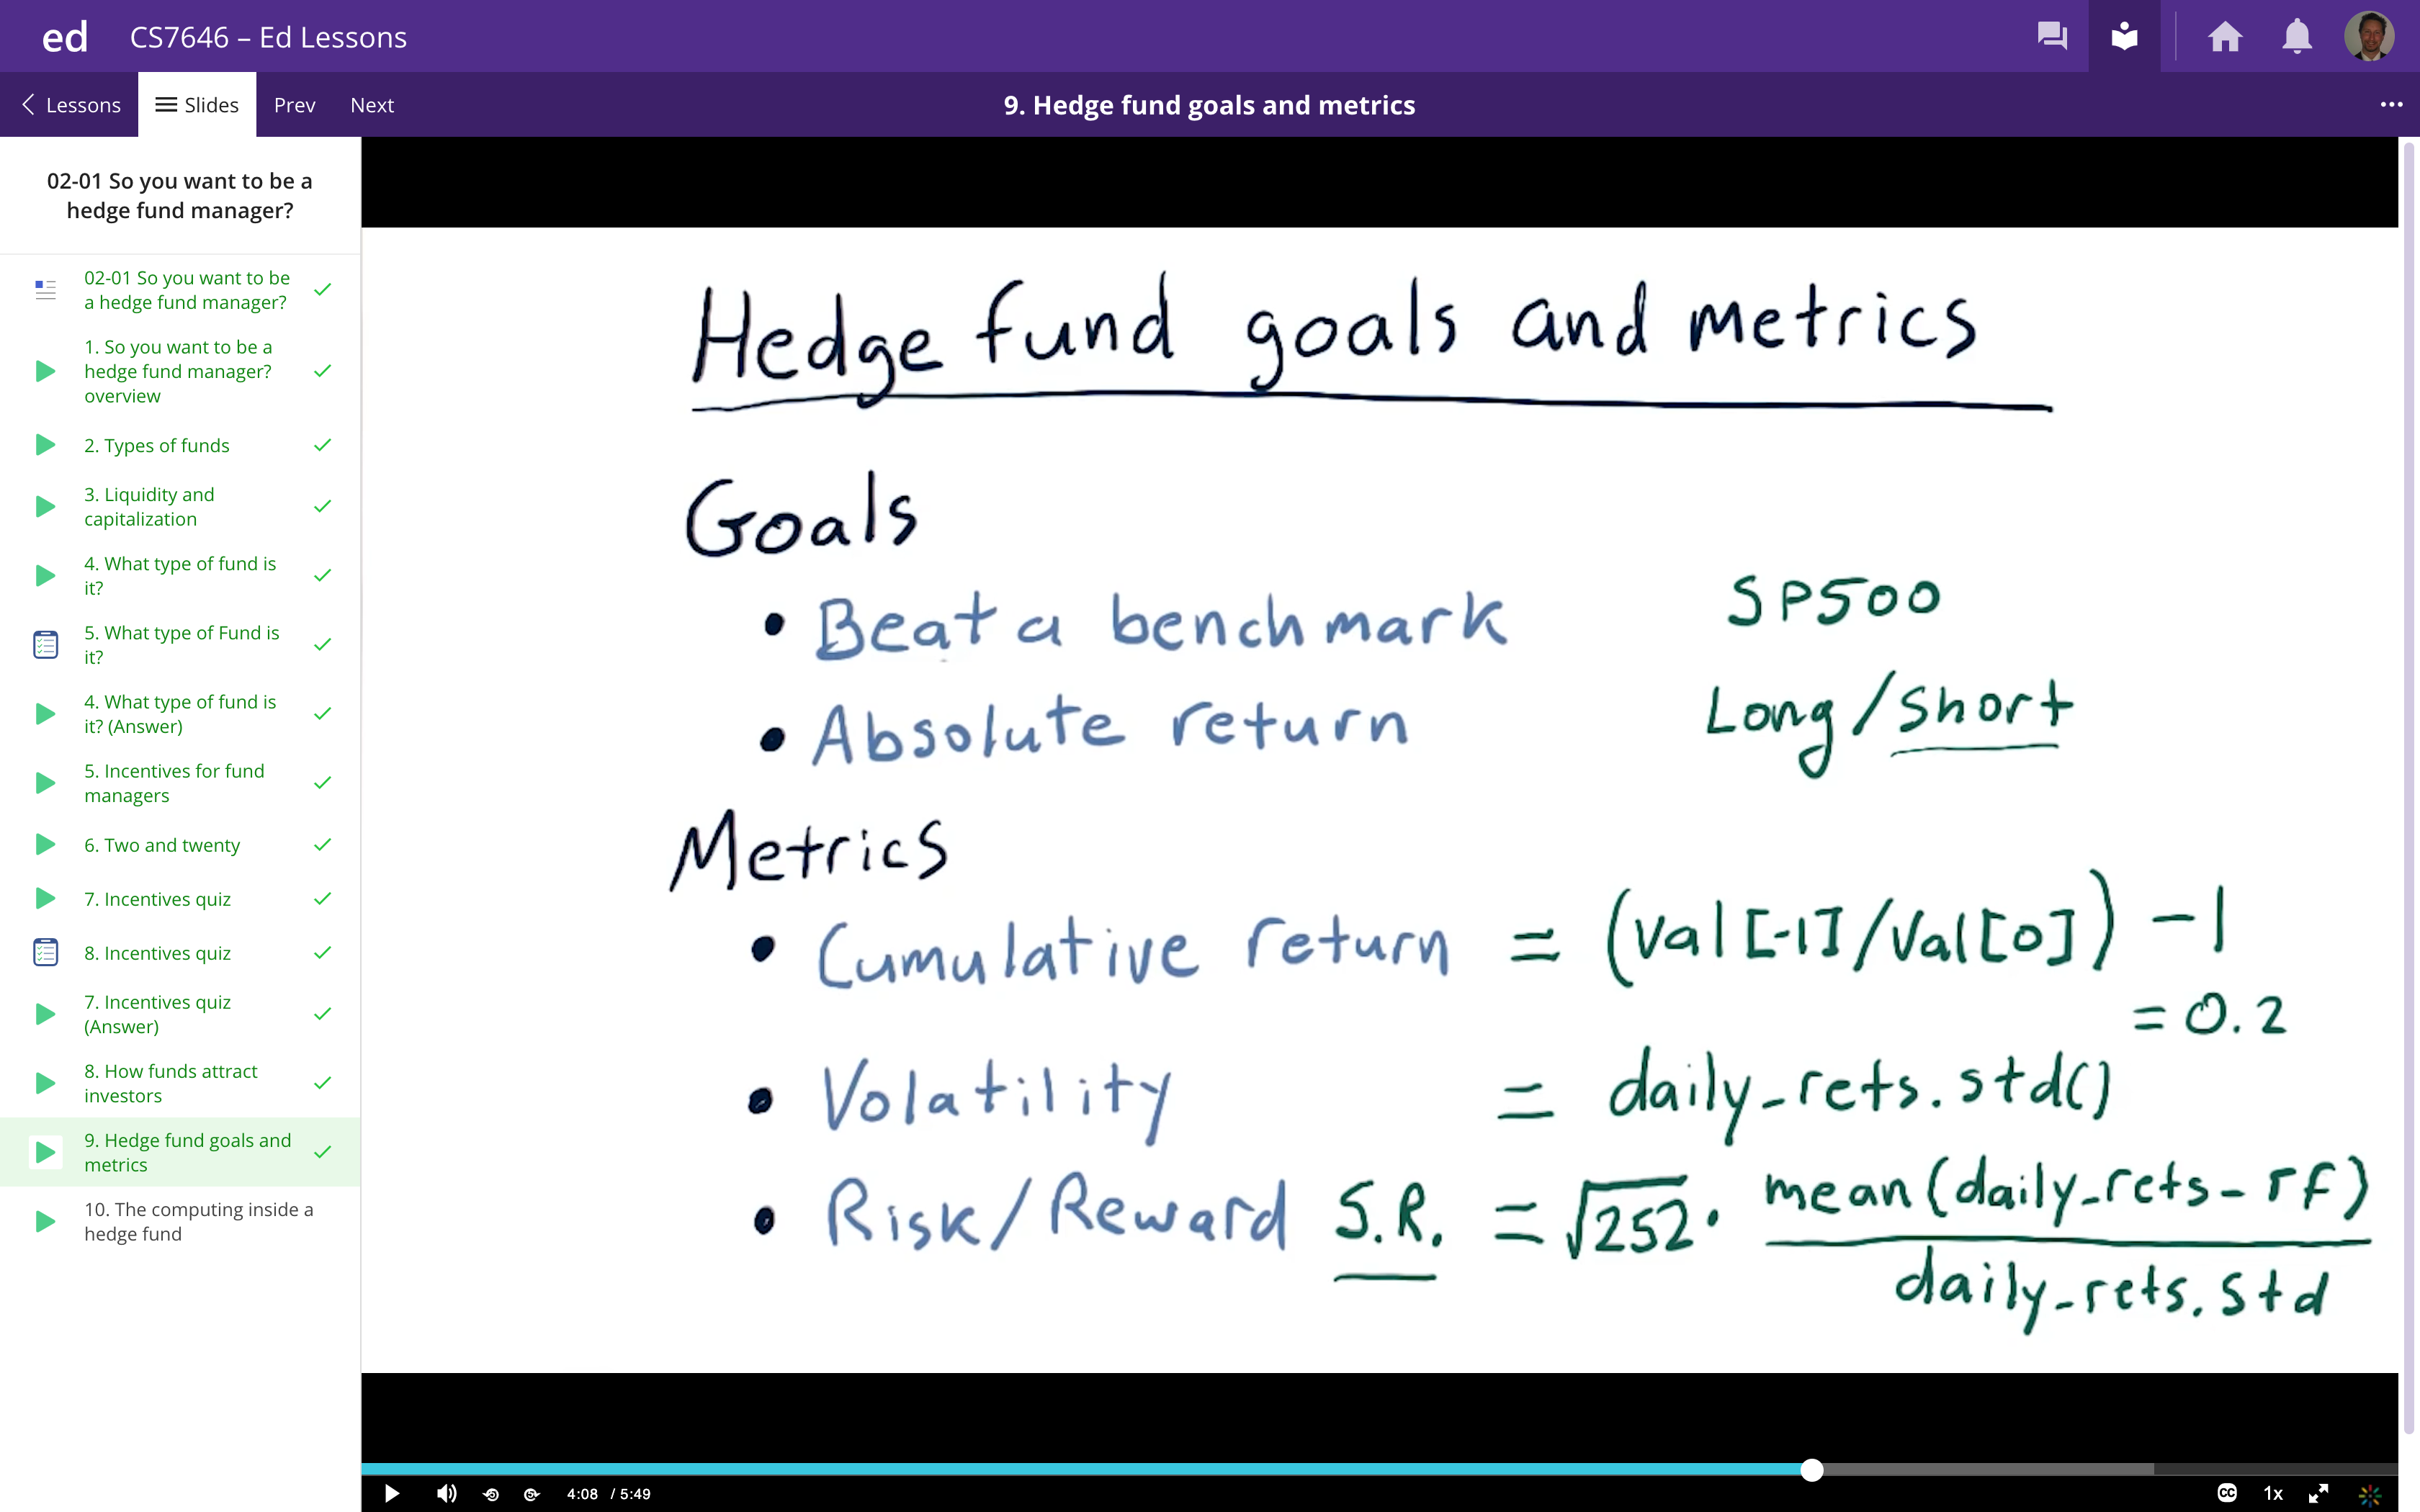 ed
CS7646 – Ed Lessons
Lessons
Slides
Prev
Next
9. Hedge fund goals and metrics
02-01 So you want to be a
hedge fund manager?
02-01 So you want to be
a hedge fund manager?
1. So you want to be a
hedge fund manager?
overview
2. Types of funds
3. Liquidity and
capitalization
4. What type of fund is
it?
5. What type of Fund is
it?
4. What type of fund is
it? (Answer)
5. Incentives for fund
managers
6. Two and twenty
7. Incentives quiz
8. Incentives quiz
7. Incentives quiz
(Answer)
8. How funds attract
investors
9. Hedge fund goals and
metrics
10. The computing inside a
hedge fund
Hedge fund goals and metrics
Goals
• Beat a benchmark SP500
• Absolute return Long/short
Metrics
• Cumulative return = (val[-1]/val[0]) - 1
= 0.2
• Volatility = daily_rets.std()
• Risk/Reward S.R. = √252 · mean(daily_rets - rf)
daily_rets.std
4:08 / 5:49
CC
1x